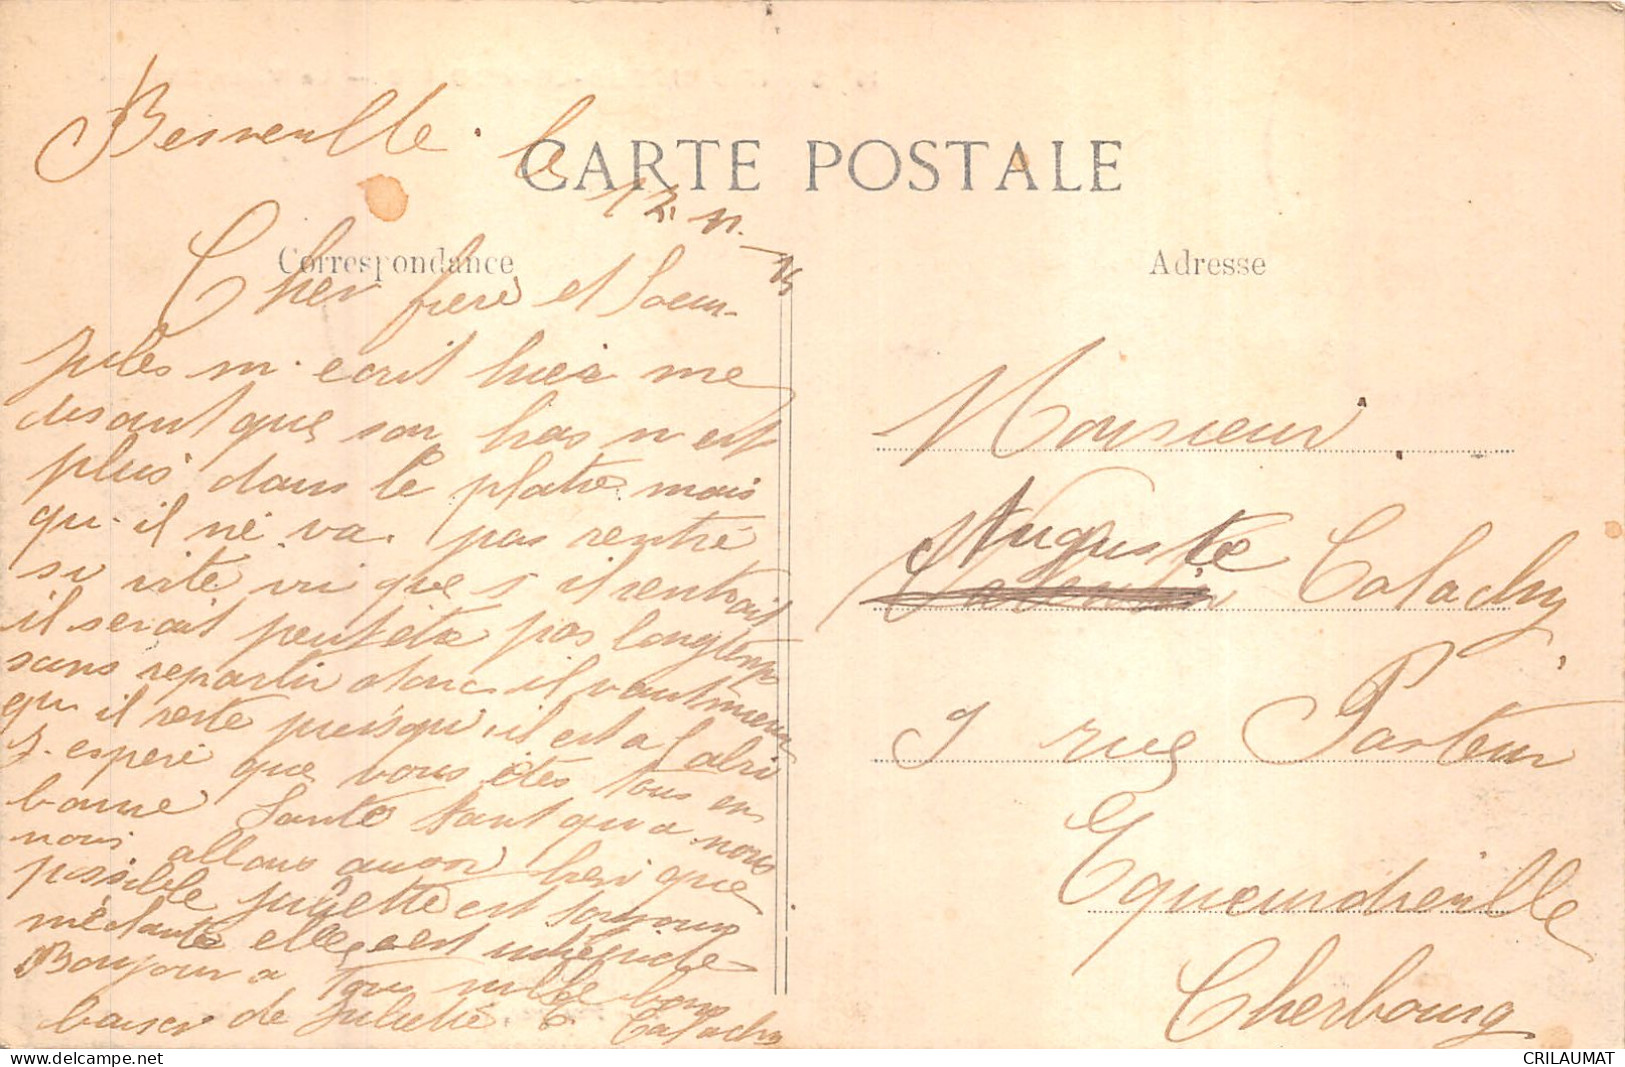 CARTE POSTALE
Correspondance
le 12 11 - 15
Cher frere et Soeur
jules m'ecrit hier me
disant que son bras n'est
plus dans le platre mais
qu'il ne va pas rentré
si vite vu que s'il rentrait
il serait peutetre pas longtemps
sans repartir donc il vaut mieux
qu'il reste puisqu'il est a l'abri
J'espere que vous êtes tous en
bonne Santé tant qu'a nous
nous allons aussi bien que
possible est toujours
méchante elle est
Bonjour a Tous mille bons
baiser de Juliette Calachy
Adresse
Monsieur
Auguste Calachy
9 rue Pasteur
Equeurdreville
Cherbourg
CRILAUMAT